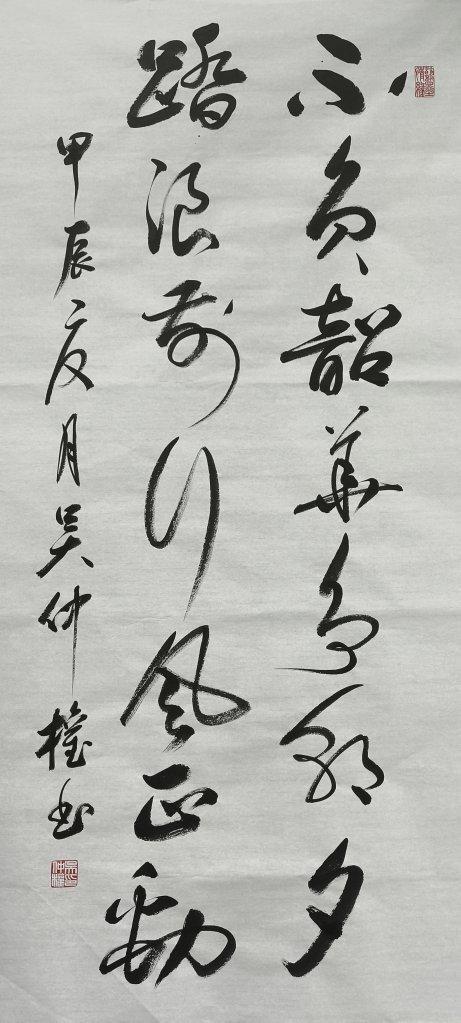 不负韶華争朝夕
踏浪前行风正劲
甲辰夏月吴仲權书